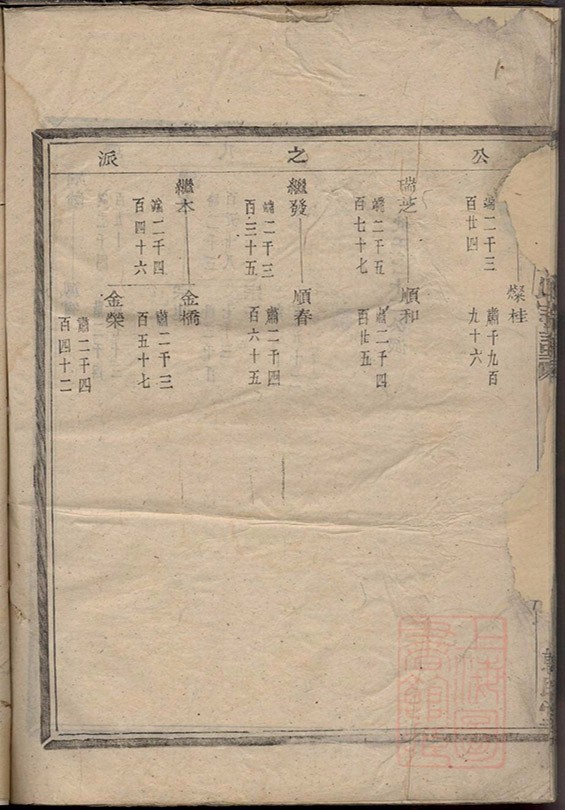 公之派
燦桂
端二千三
百廿四
肅千九百
九十六
瑞芝
順和
端二千五
百七十七
肅二千四
百廿五
繼發
順春
端二千三
百三十五
肅二千四
百六十五
繼本
金橋
端二千四
百四十六
肅二千三
百五十七
金榮
肅二千四
百四十二